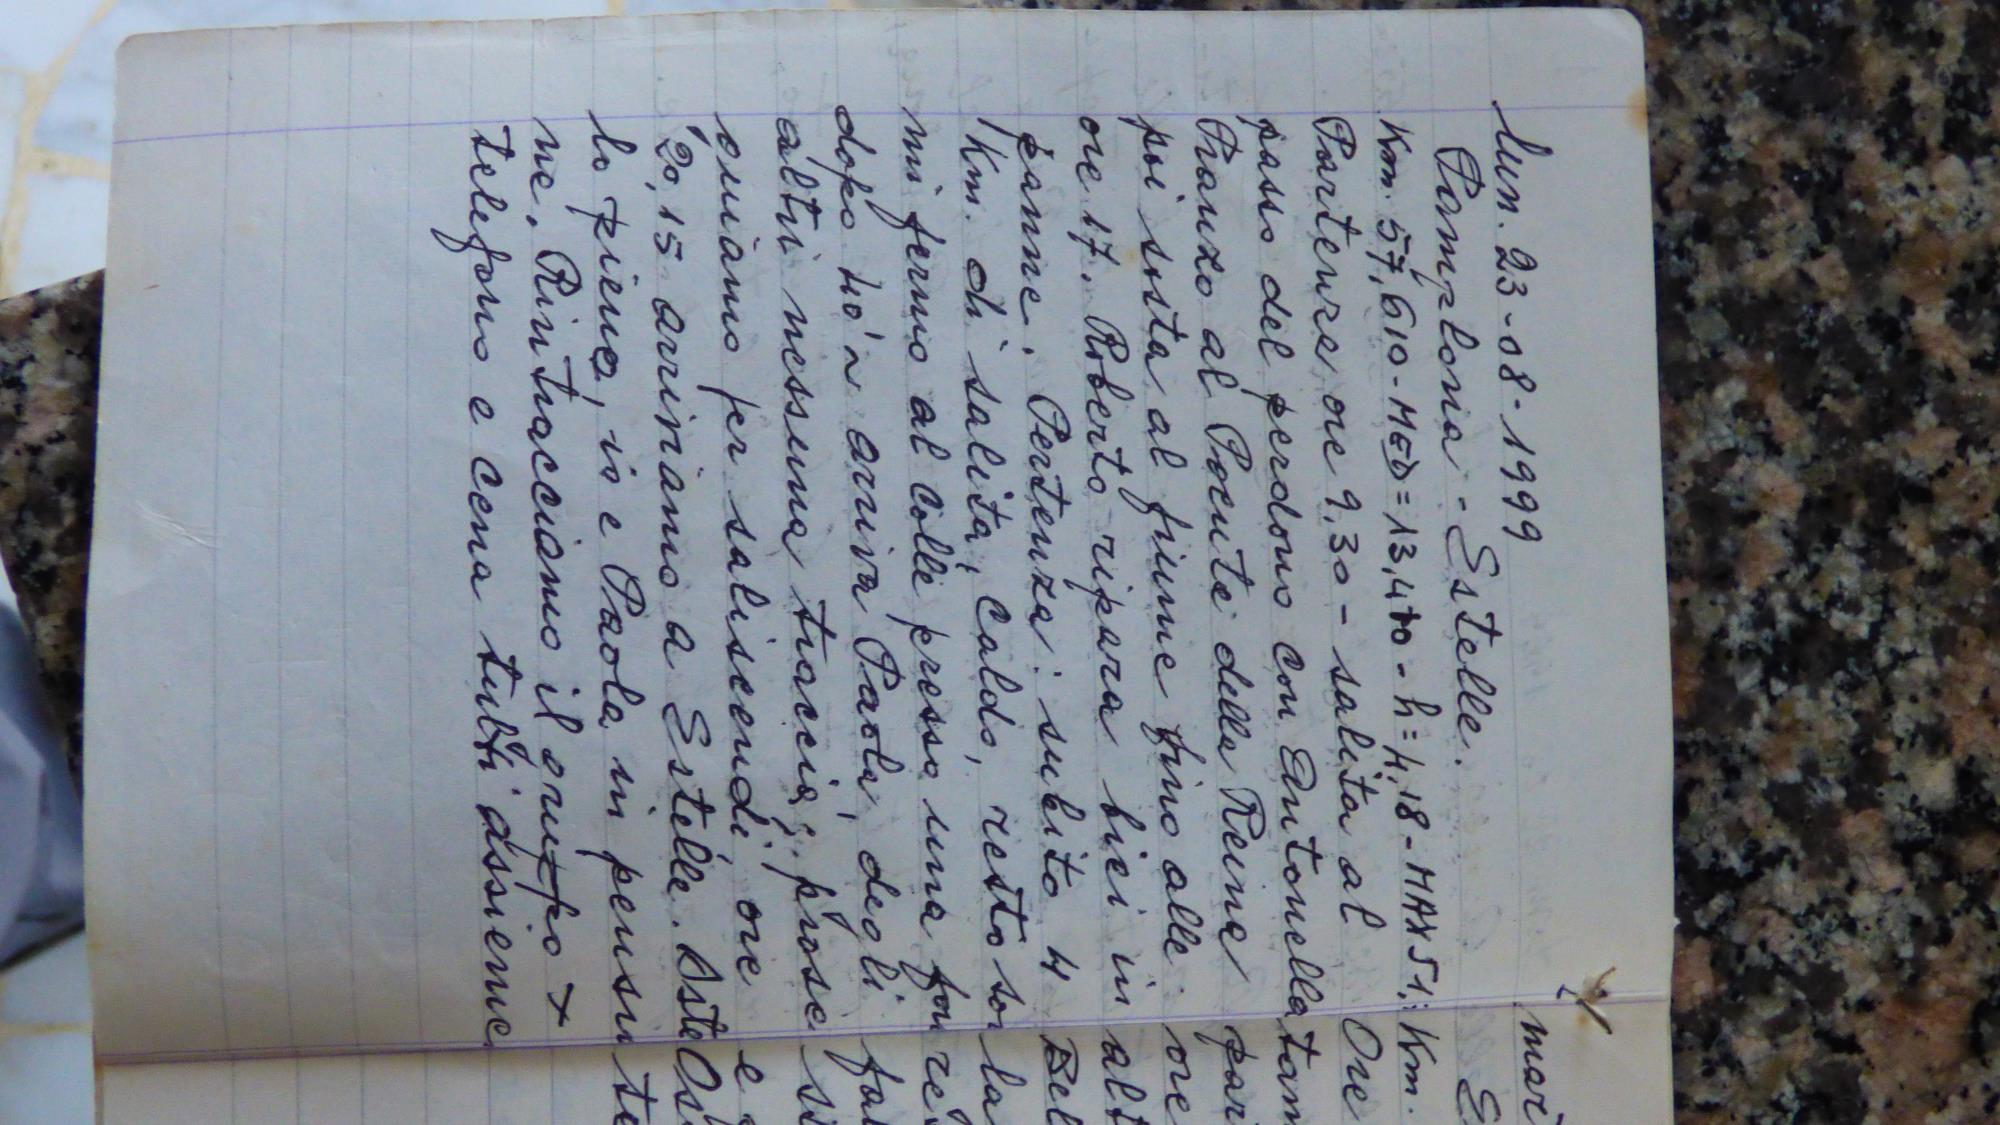 Lun. 23-08-1999
Pamplona - Estelle.
Km. 57,610 - MED = 13,470 - h = 4,18 - MAX 51;
Partenza ore 9,30 - salita al
passo del perdono con Antonella
Pranzo al Puente della Reina
poi sosta al fiume fino alle
ore 17. Roberto ripara bici in
panne. Partenza: subito 4
Km. di salita, caldo, resto so
mi fermo al colle presso una fon
dopo 40' ~ arriva Paola, degli
altri nessuna traccia; prose
guiamo per saliscendi, ore
20,15 arriviamo a Estelle. Oste
lo pieno, io e Paola in pensio
ne. Rintracciamo il gruppo x
telefono e cena tutti assieme
mar
E
Km.
Ore
tam
par
ore
alt
Bel
la
ré
fa
si
e
Os
te